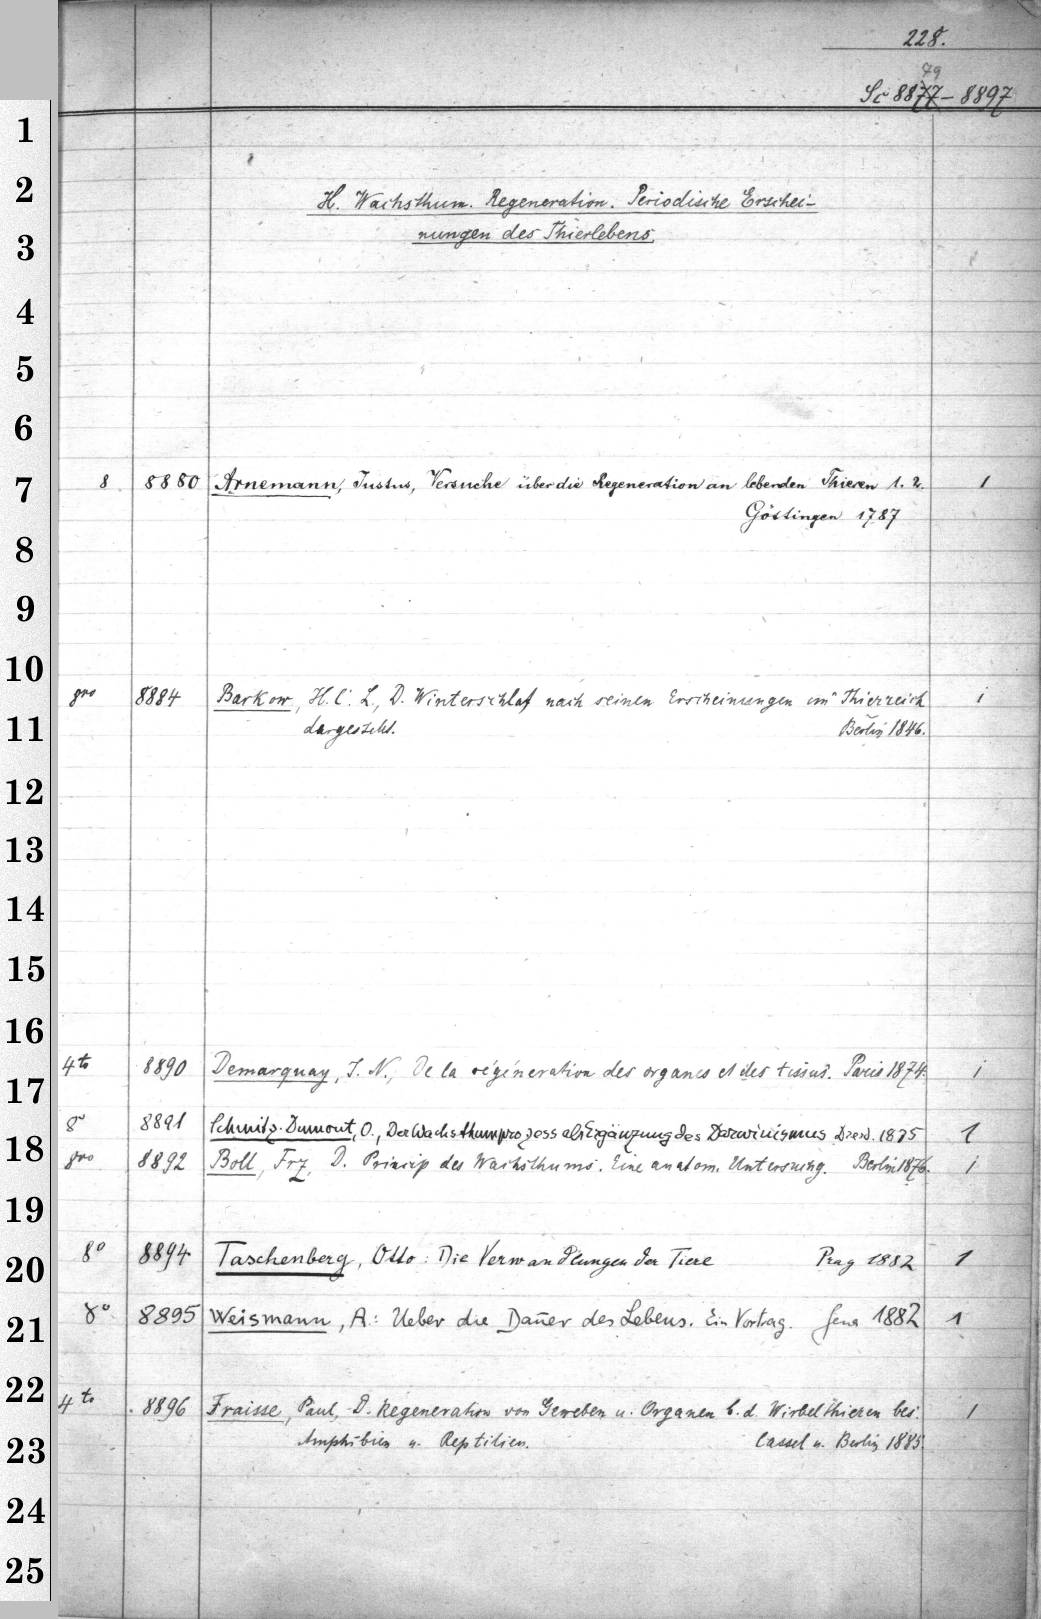 228.
79
Sc 8877-8897
1
2
H. Wachsthum. Regeneration. Periodische Erschei-
3
nungen des Thierlebens.
4
5
6
7
8 8880 Arnemann, Justus, Versuche über die Regeneration an lebenden Thieren 1. 2. 1
Göttingen 1787
8
9
10
gro 8884 Barkow, H. C. L., D. Winterschlaf nach seinen Erscheinungen im Thierreich 1
11
dargestellt. Berlin 1846.
12
13
14
15
16
17
4to 8890 Demarquay, J. N., De la régéneration des organes et des tissus. Paris 1874. 1
18
8° 8891 Schmitz-Dumont, O., Der Wachsthumprozess als Ergänzung des Darwinismus Dresd. 1875 1
gro 8892 Boll, Frz, D. Princip des Wachsthums. Eine anatom. Untersuchg. Berlin 1876. 1
19
20
8° 8894 Taschenberg, Otto: Die Verwandlungen der Tiere Prag 1882 1
21
8° 8895 Weismann, A.: Ueber die Dauer des Lebens. Ein Vortrag. Jena 1882 1
22
4to 8896 Fraisse, Paul, D. Regeneration von Geweben u. Organen b. d. Wirbelthieren bes. 1
23
Amphibien u. Reptilien. Cassel u. Berlin 1885
24
25